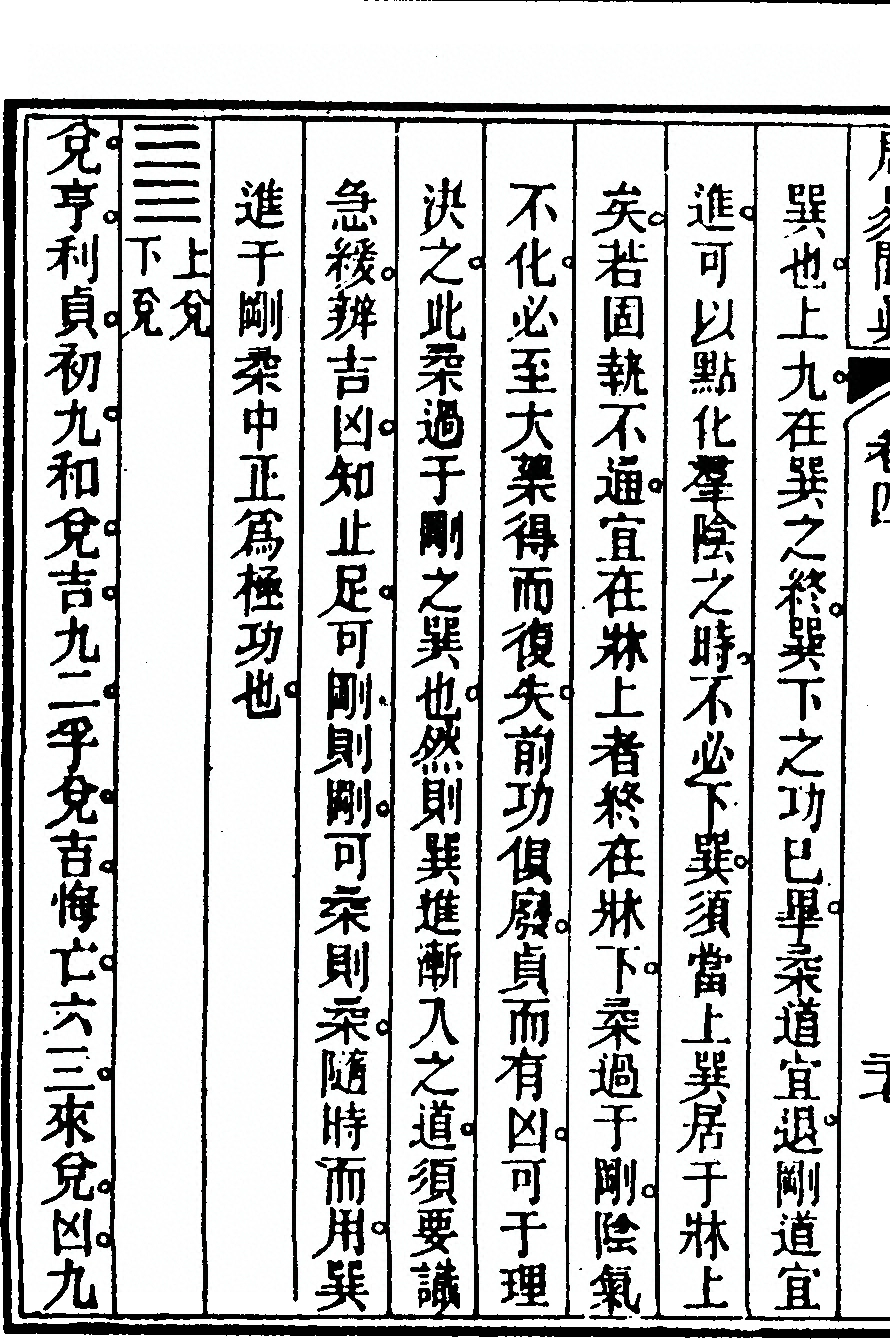 卷四
巽也上九在巽之終巽下之功已畢柔道宜退剛道宜
進可以點化羣陰之時不必下巽須當上巽居于牀上
矣若固執不通宜在牀上者終在牀下柔過于剛陰氣
不化必至大藥得而復失前功俱廢貞而有凶可于理
決之此柔過于剛之巽也然則巽進漸入之道須要識
急緩辨吉凶知止足可剛則剛可柔則柔隨時而用巽
進于剛柔中正爲極功也
䷹
上兌
下兌
兌亨利貞初九和兌吉九二孚兌吉悔亡六三來兌凶九